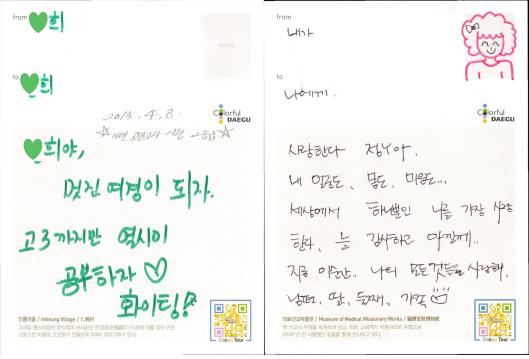 from
희
to
희
2015. 4. 8.
Colorful
DAEGU
희야,
멋진 여경이 되자.
고3까지만 열심히
공부하자
화이팅!
인흥마을 / Inheung Village / 仁興村
Daegu Tour
from
내가
to
나에게.
Colorful
DAEGU
사랑한다
내 얼굴도, 몸도, 마음도...
세상에서 하나뿐인 나를 가장 사랑
한다, 늘 감사하고 아낄게..
나의 모든것들을 사랑해,
남편, 딸, 가족
의료선교박물관 / Museum of Medical Missionary Works / 醫療宣敎博物館
Daegu Tour